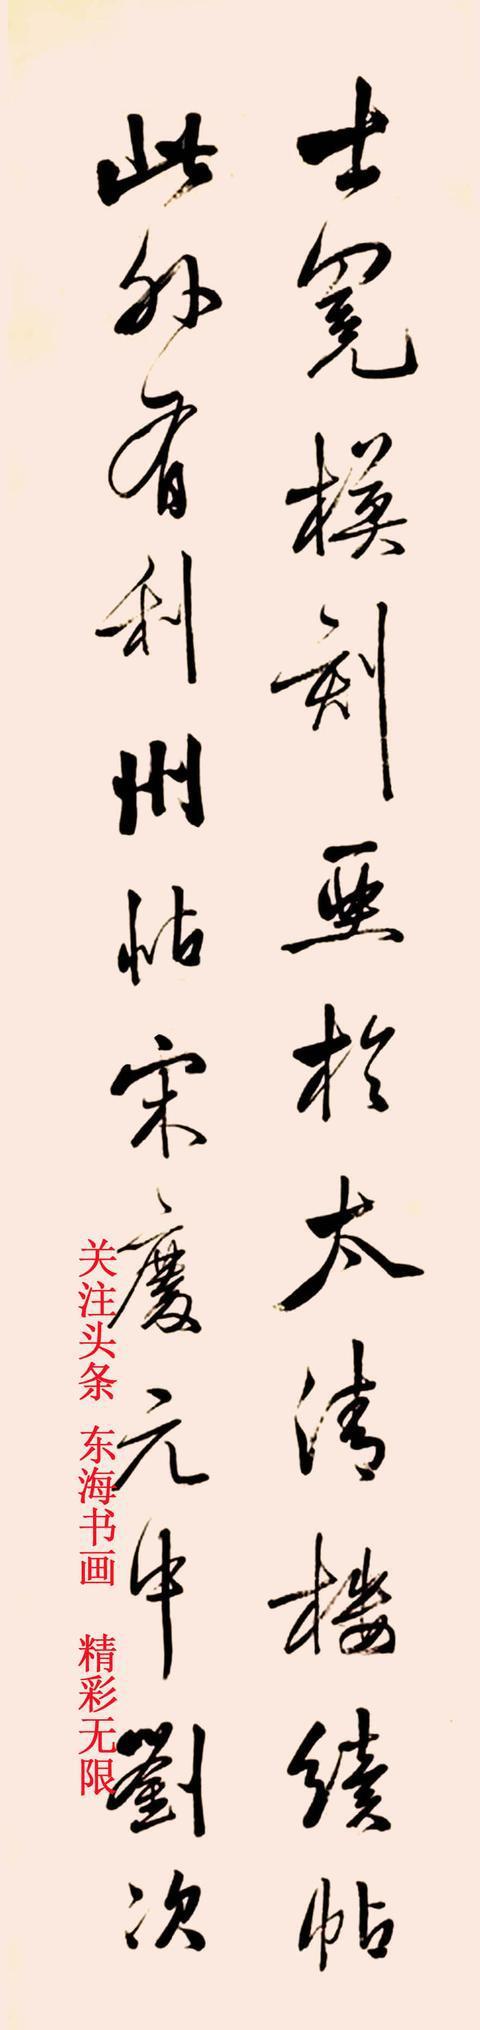 士冕模刻亞於太清樓續帖
此外有利州帖宋慶元中劉次
关注头条 东海书画 精彩无限